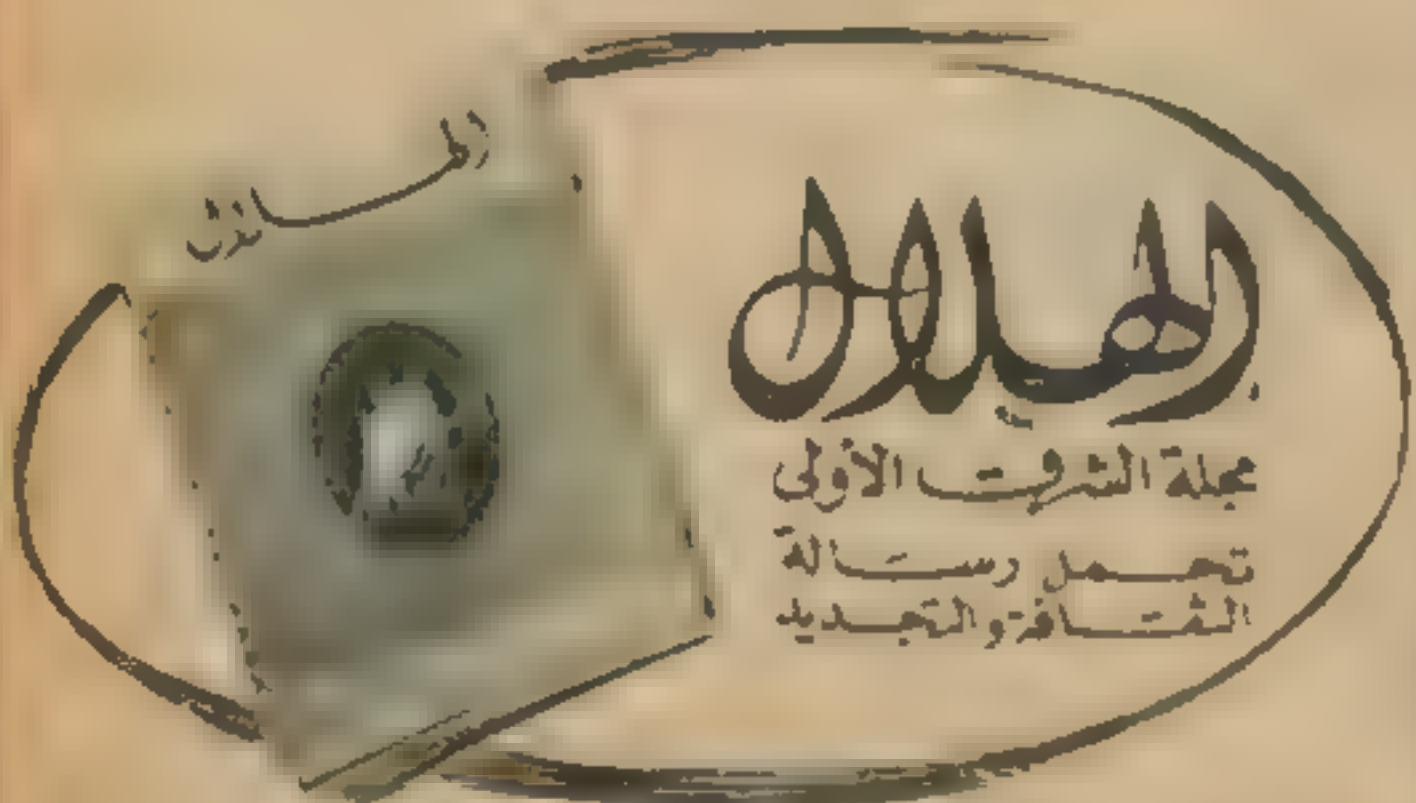 الهلال
مجلة الشرق الأولى
تحمل رسالة
الثقافة والتجديد
الهلال